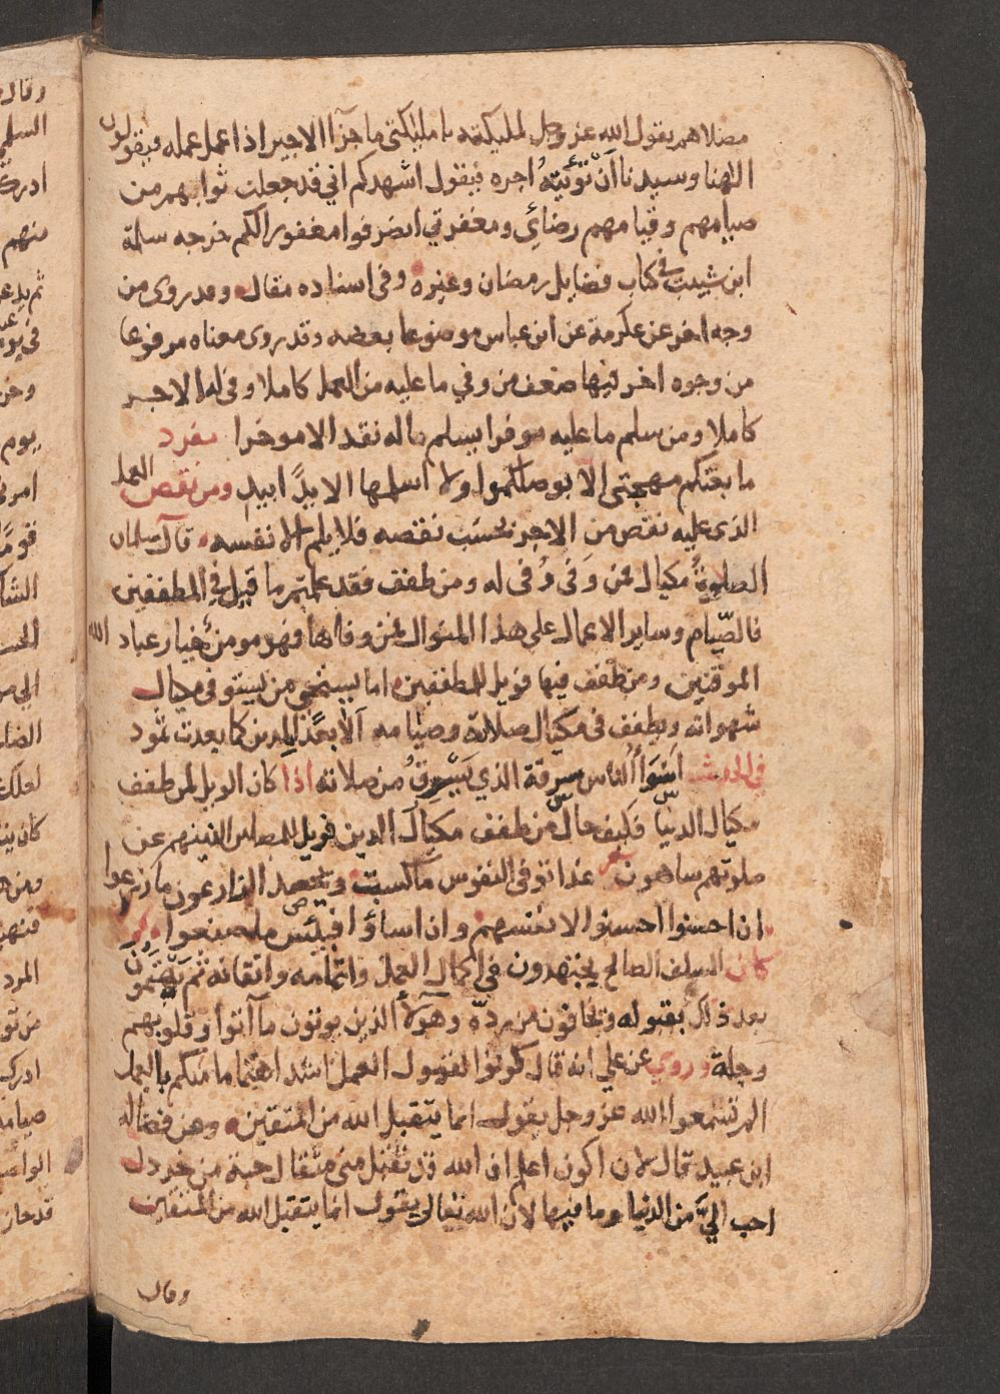 مصلاهم يقول الله عز وجل لمليكته يا مليكتي ما جزآ الاجير اذا عمل عمله فيقولون
الٰهنا وسيدنا أن تؤتيهُ اجره فيقول اشهدكم اني قد جعلت ثوابهم من
صيامهم وقيامهم رضائي ومغفرتي انصرفوا مغفورا لكم خرجه سلمة
ابن شبيب في كتاب فضايل رمضان وغيره وفي اسناده مقال وقد روى من
وجه اخر عن عكرمة عن ابن عباس موضوعا بعضه وقد روى معناه مرفوعا
من وجوه اخر فيها ضعف من وفي ما عليه من العمل كاملا وفي له الاجر
كاملا ومن سلم ما عليه موفرا يسلم ماله نقدا لا موخرا مفرد
ما بعتكم مهجتي الا بوصلكموا ولا اسلمها الا يدًا بيد ومن نقص العمل
الذي عليه نقص من الاجر بحسَب نقصه فلا يلم الا نفسه قال سلمان
الصلوة مكيال فمن وَفى وُفى له ومن طفف فقد علمتم ما قيل في المطففين
فالصّيام وساير الاعمال على هذا المنوال فمن وفاها فهو من خيار عباد الله
الموفين ومن طفف فيها فويل للمطففين اما يستحي من يستوفي مكيال
شهواته ويطفف في مكيال صلاته وصيامه ألا بعدًا لمدين كما بعدت ثمود
في الحديث اسَوَأ الناس سرقة الذي يَسْرِقُ من صلاته اذا كان الويل لمن طفف
مكيال الدنيا فكيف حال من طفف مكيال الدين فويل للمصلين الذينهم عن
صلوتهم ساهون غدا توفى النفوس ما كسبت ويحصد الزارعون ما زرعوا
ان احسنوا احسنوا لانفسهم وان اساؤا فبئس ما صنعوا
كان السلف الصالح يجتهدون في اكمال العمل واتمامه واتقانه ثم يهتمون
بعد ذلك بقبوله ويخافون من ردّه وهولآ الذين يوتون ما آتوا وقلوبهم
وجلة وروي عن علي انه قال كونوا لقبول العمل اشد اهتماما منكم بالعمل
الم تسمعوا الله عز وجل يقول انما يتقبل الله من المتقين وعن فضالة
ابن عبيد قال لان اكون اعلم ان الله قد تقبل مني مثقال حبة من خردل
احب اليَّ من الدنيا وما فيها لان الله تعالى يقول انما يتقبل الله من المتقين
وقال